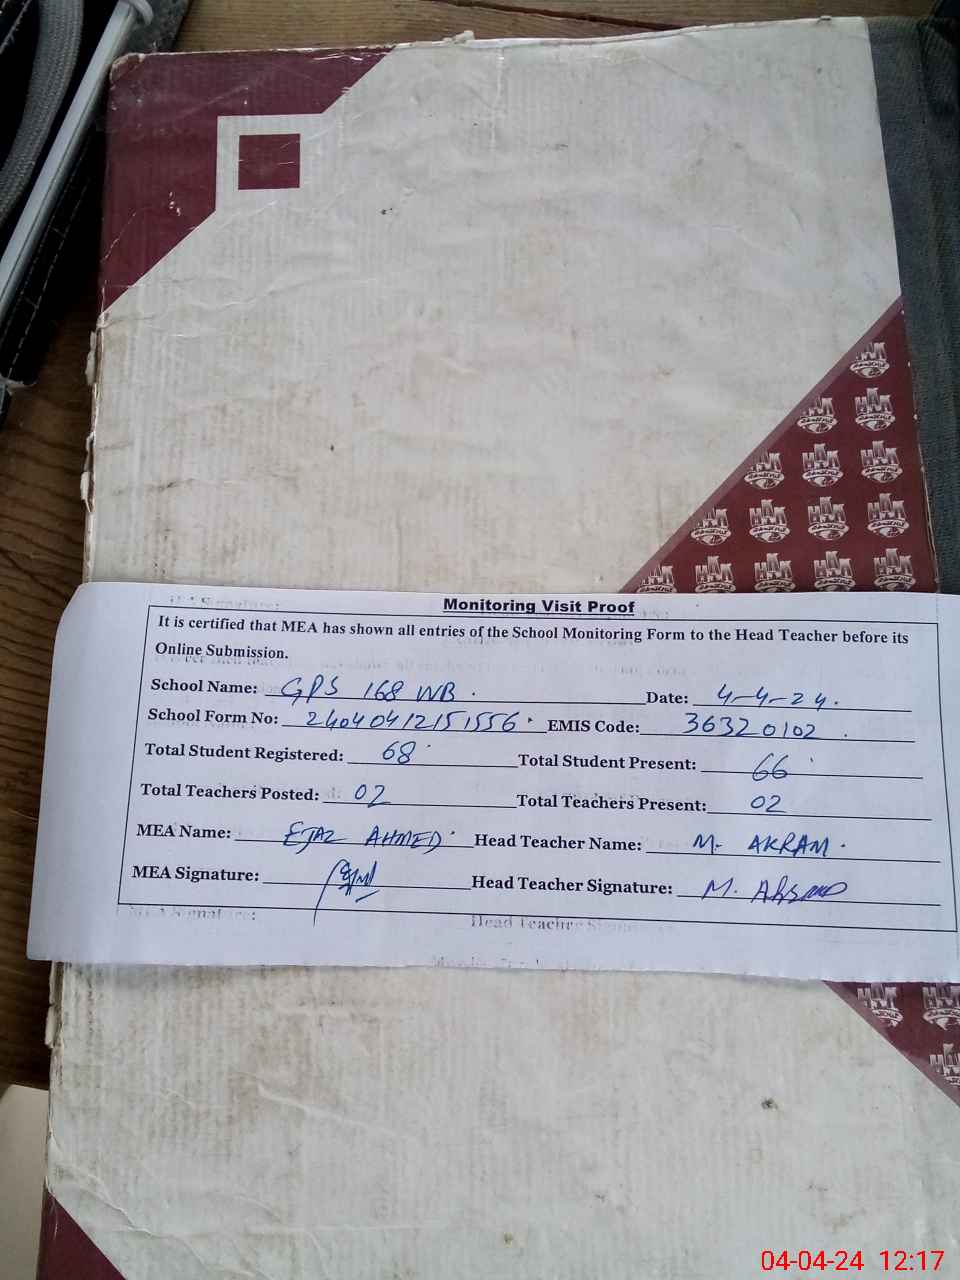 Monitoring Visit Proof
It is certified that MEA has shown all entries of the School Monitoring Form to the Head Teacher before its
Online Submission.
School Name: GPS 168 WB. Date: 4-4-24.
School Form No: 24040412151556 EMIS Code: 36320102
Total Student Registered: 68 Total Student Present: 66
Total Teachers Posted: 02 Total Teachers Present: 02
MEA Name: EJAZ AHMED Head Teacher Name: M. AKRAM.
MEA Signature: Head Teacher Signature: M.
MEA Signature: Head Teacher
04-04-24 12:17